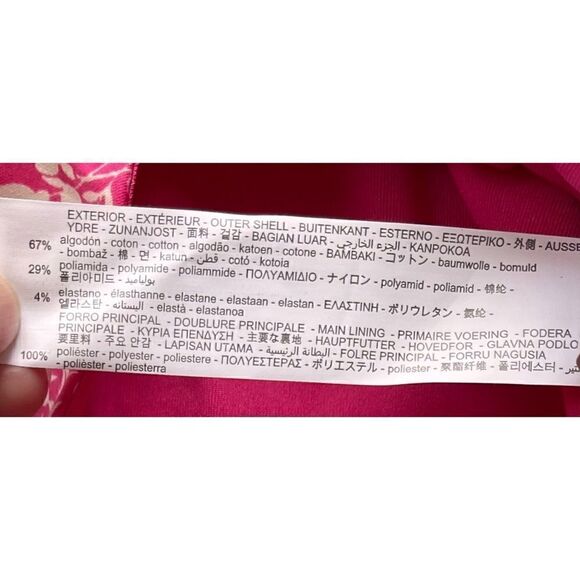 EXTERIOR - EXTÉRIEUR - OUTER SHELL - BUITENKANT - ESTERNO - ΕΞΩΤΕΡΙΚΟ - 外側 - AUSSE
YDRE - ZUNANJOST - 面料 - 겉감 - BAGIAN LUAR - الجزء الخارجي - KANPOKOA
67% algodón - coton - cotton - algodão - katoen - cotone - ΒΑΜΒΑΚΙ - コットン - baumwolle - bomuld
- bombaž - 棉 - 면 - katun - قطن - cotó - kotoia
29% poliamida - polyamide - poliammide - ΠΟΛΥΑΜΙΔΙΟ - ナイロン - polyamid - poliamid - 锦纶
- 폴리아미드 - بولياميد
4% elastano - élasthanne - elastane - elastaan - elastan - ΕΛΑΣΤΙΝΗ - ポリウレタン - 氨纶
- 엘라스탄 - الياستانه - elastà - elastanoa
FORRO PRINCIPAL - DOUBLURE PRINCIPALE - MAIN LINING - PRIMAIRE VOERING - FODERA
PRINCIPALE - ΚΥΡΙΑ ΕΠΕΝΔΥΣΗ - 主要な裏地 - HAUPTFUTTER - HOVEDFOR - GLAVNA PODLO
要里料 - 주요 안감 - LAPISAN UTAMA - البطانة الرئيسية - FOLRE PRINCIPAL - FORRU NAGUSIA
100% poliéster - polyester - poliestere - ΠΟΛΥΕΣΤΕΡΑΣ - ポリエステル - poliester - 聚酯纤维 - 폴리에스터 -
- polièster - poliesterra